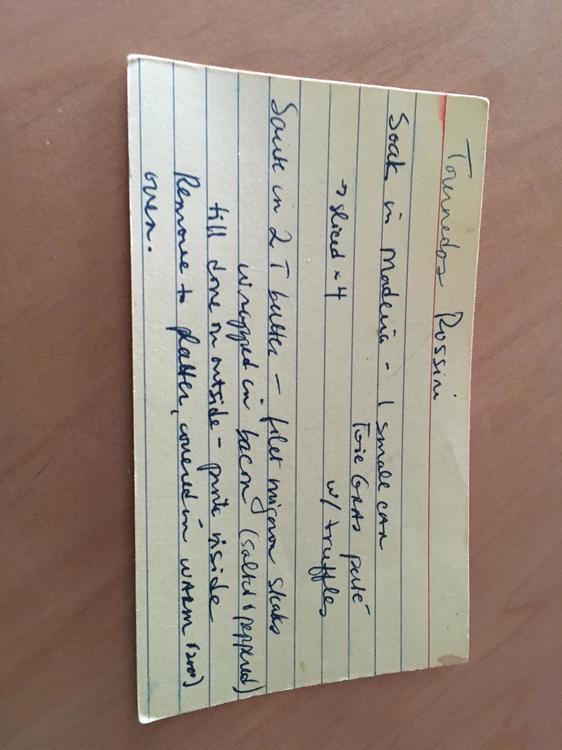 Tournedos Rossini
Soak in Madeira - 1 small can
Foie Gras paté
→ sliced x 4 w/ truffles
Sauté in 2 T butter - filet mignon steaks
wrapped in bacon (salted & peppered)
till done on outside - pink inside
Remove to platter, covered in warm (200°)
oven.